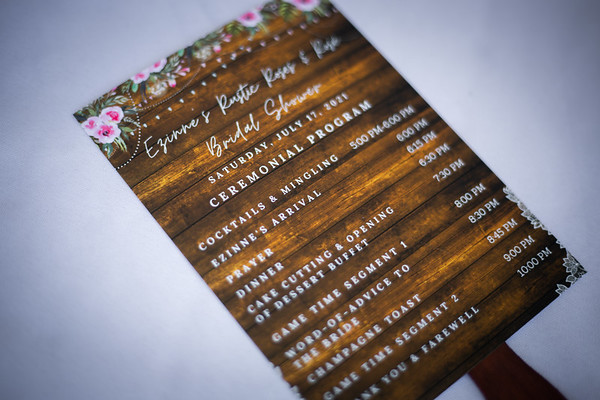 Ezinne's Rustic Roses & Rose
Bridal Shower
SATURDAY, JULY 17, 2021
CEREMONIAL PROGRAM
COCKTAILS & MINGLING 5:00 PM-6:00 PM
EZINNE'S ARRIVAL 6:00 PM
PRAYER 6:15 PM
DINNER 6:30 PM
CAKE CUTTING & OPENING 7:30 PM
OF DESSERT BUFFET
GAME TIME SEGMENT 1 8:00 PM
WORD-OF-ADVICE TO 8:30 PM
THE BRIDE
CHAMPAGNE TOAST 8:45 PM
GAME TIME SEGMENT 2 9:00 PM
ANK YOU & FAREWELL 10:00 PM